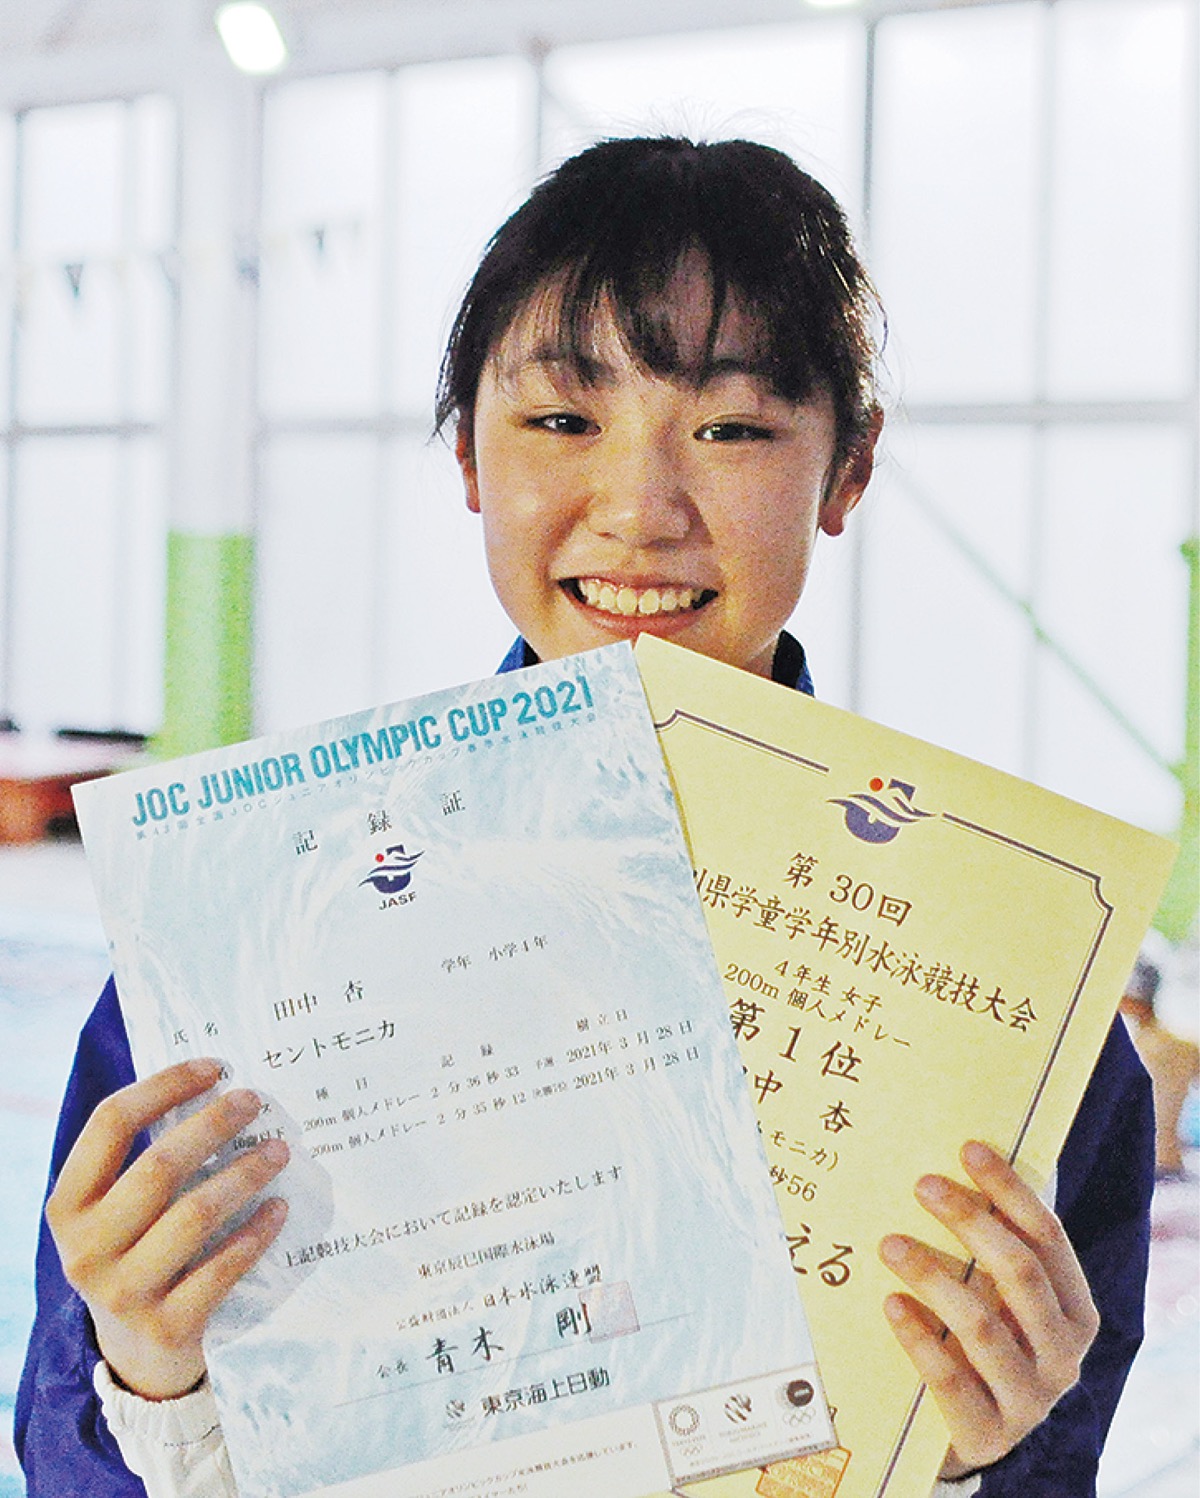 JOC JUNIOR OLYMPIC CUP 2021
第43回全国JOCジュニアオリンピックカップ春季水泳競技大会
記録証
JASF
学年 小学4年
氏名 田中 杏
セントモニカ
種目 記録 樹立日
200m 個人メドレー 2分36秒33 予選 2021年3月28日
10歳以下 200m 個人メドレー 2分35秒12 2021年3月28日
上記競技大会において記録を認定いたします
東京辰巳国際水泳場
公益財団法人 日本水泳連盟
会長 青木 剛
東京海上日動
第30回
県学童学年別水泳競技大会
4年生 女子
200m 個人メドレー
第1位
中 杏
モニカ)
秒56
える